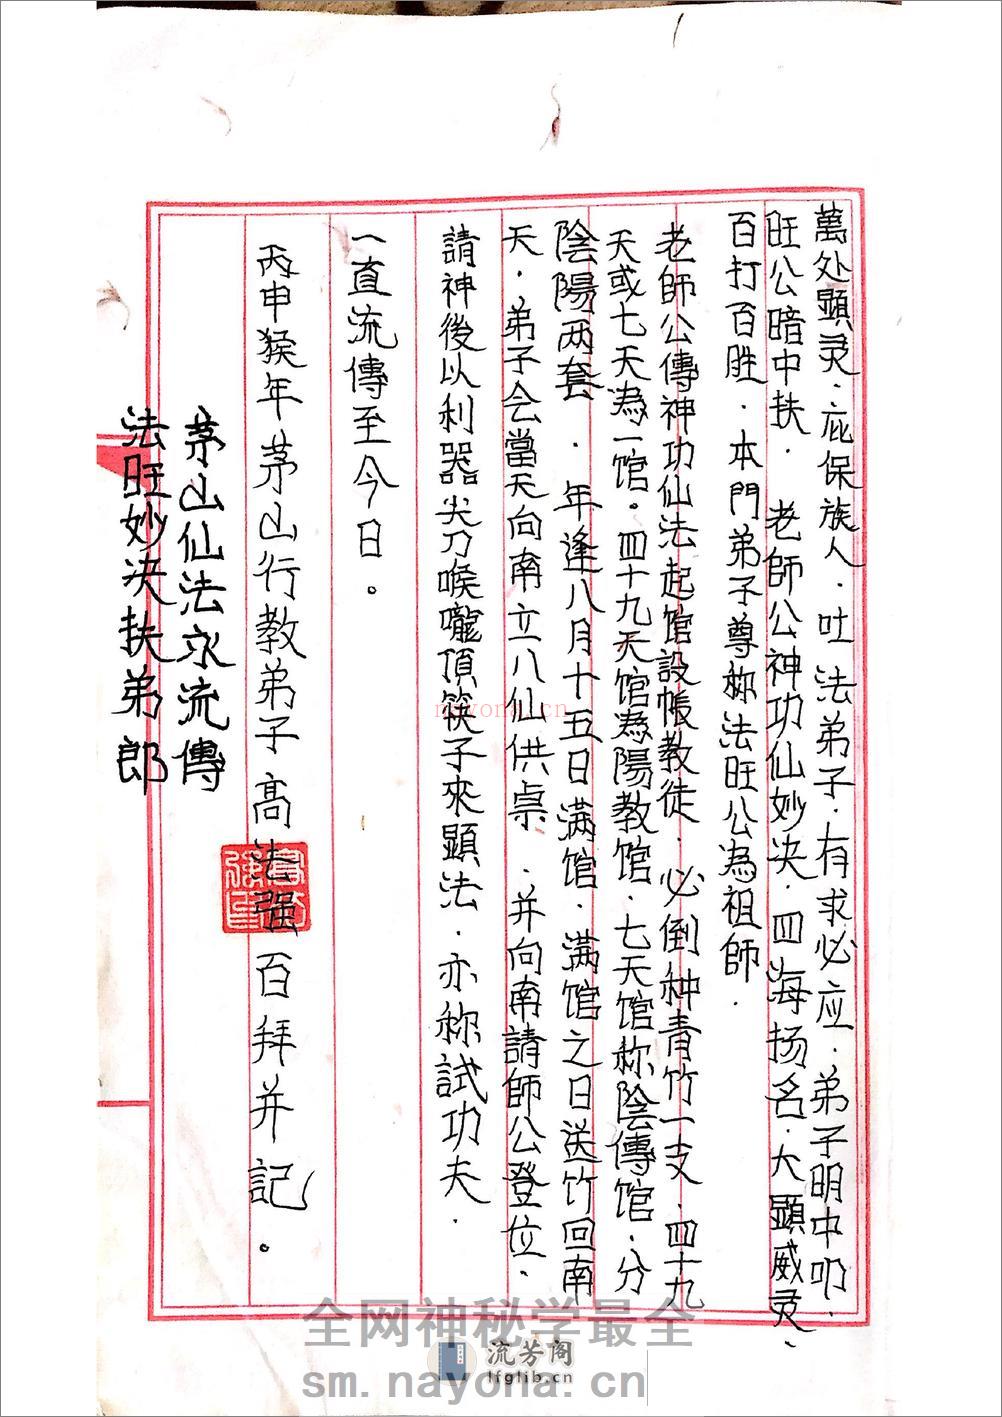 萬处顕灵．庇保族人．吐法弟子．有求必应．弟子明中叩．
旺公暗中扶．老師公神功仙妙决．四海扬名．大顕威灵．
百打百胜．本門弟子尊称法旺公為祖師．
老師公傳神功仙法起馆設帳教徒．必倒种青竹一支．四十九
天或七天為一馆。四十九天馆為陽教馆．七天馆称陰傳馆．分
陰陽两套．年逢八月十五日满馆．满馆之日送竹回南
天．弟子会當天向南立八仙供桌．并向南請師公登位．
請神後以利器尖刀喉嚨頂筷子來顕法．亦称試功夫．
一直流傳至今日。
丙申猴年茅山行教弟子高法强百拜并記。
茅山仙法永流傳
法旺妙决扶弟郎
nayona.cn
全网神秘学最全
流芳阁
lfglib.cn
sm.nayona.cn